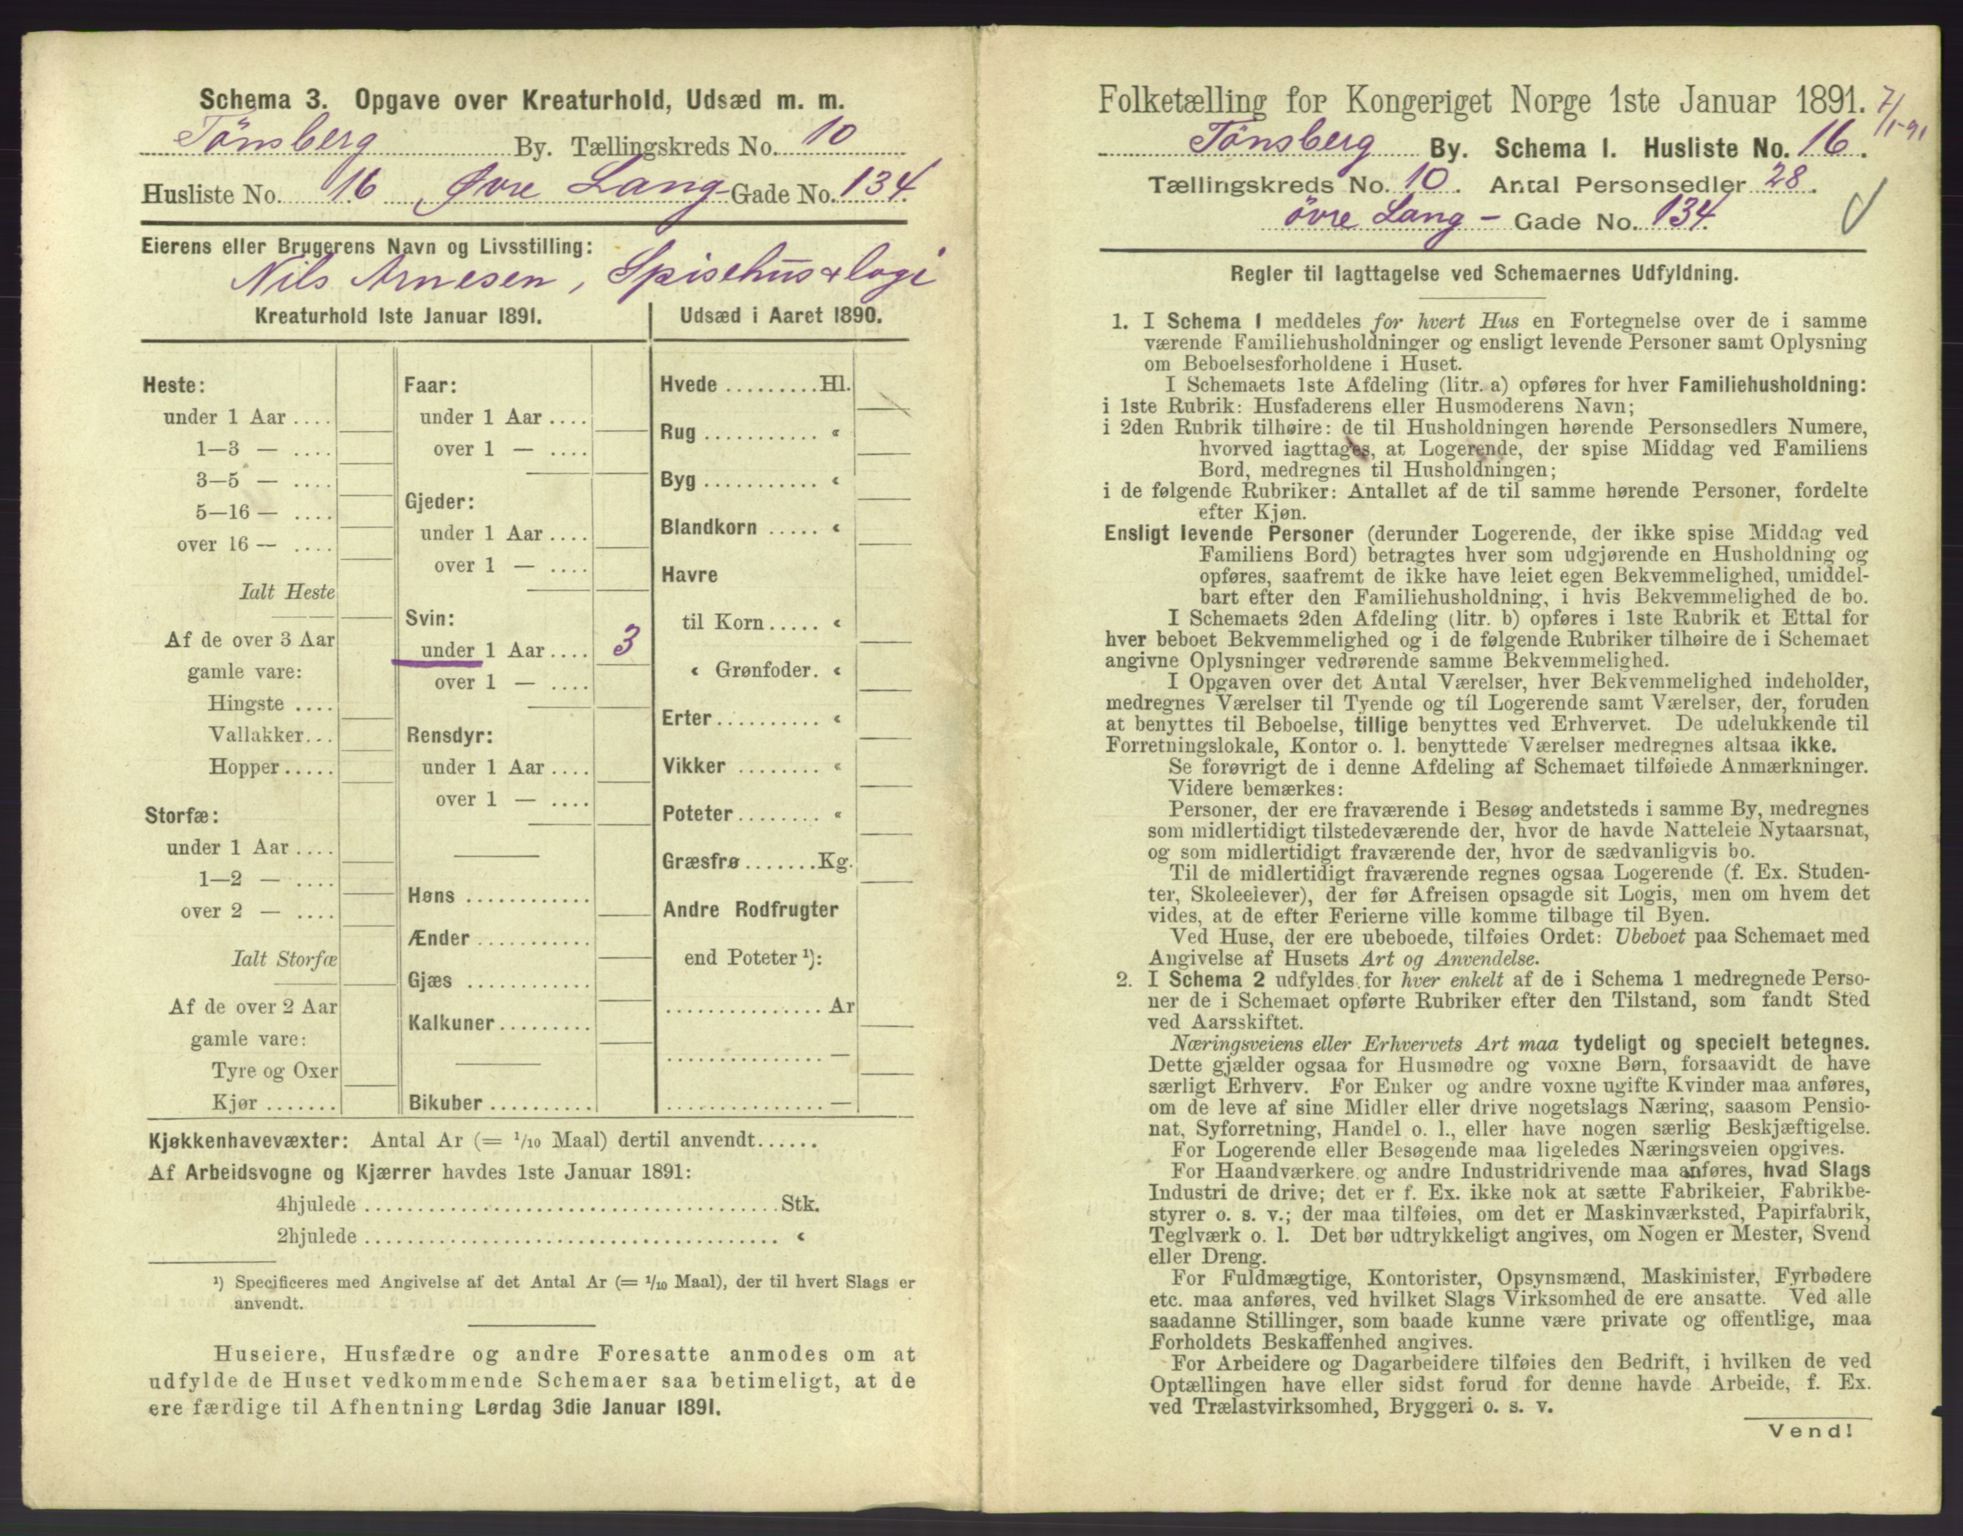 Schema 3. Opgave over Kreaturhold, Udsæd m. m.
Tönsberg By. Tællingskreds No. 10
Husliste No. 16 Øvre Lang Gade No. 134.
Eierens eller Brugerens Navn og Livsstilling:
Nils Arnesen, Spisehus & logi
Kreaturhold 1ste Januar 1891.
Heste:
under 1 Aar ....
1—3 — ....
3—5 — ....
5—16 — ....
over 16 — ....
Ialt Heste
Af de over 3 Aar
gamle vare:
Hingste ....
Vallakker...
Hopper.....
Storfæ:
under 1 Aar ....
1—2 — ....
over 2 — ....
Ialt Storfæ
Af de over 2 Aar
gamle vare:
Tyre og Oxer
Kjør .......
Faar:
under 1 Aar ....
over 1 — ....
Gjeder:
under 1 Aar ....
over 1 — ....
Svin:
under 1 Aar .... 3
over 1 — ....
Rensdyr:
under 1 Aar ....
over 1 — ....
Høns ............
Ænder ...........
Gjæs ............
Kalkuner.........
Bikuber ..........
Udsæd i Aaret 1890.
Hvede .........Hl.
Rug ........... "
Byg ............ "
Blandkorn ..... "
Havre
til Korn..... "
" Grønfoder. "
Erter.......... "
Vikker ........ "
Poteter........ "
Græsfrø.......Kg.
Andre Rodfrugter
end Poteter ¹):
...............Ar
...............—
...............—
Kjøkkenhavevæxter: Antal Ar (= 1/10 Maal) dertil anvendt......
Af Arbeidsvogne og Kjærrer havdes 1ste Januar 1891:
4hjulede .......................................Stk.
2hjulede ....................................... "
¹) Specificeres med Angivelse af det Antal Ar (= 1/10 Maal), der til hvert Slags er
anvendt.
Huseiere, Husfædre og andre Foresatte anmodes om at
udfylde de Huset vedkommende Schemaer saa betimeligt, at de
ere færdige til Afhentning Lørdag 3die Januar 1891.
Folketælling for Kongeriget Norge 1ste Januar 1891. 7/1-91
Tönsberg By. Schema 1. Husliste No. 16.
Tællingskreds No. 10. Antal Personsedler 28.
övre Lang- Gade No. 134.
Regler til Iagttagelse ved Schemaernes Udfyldning.
1. I Schema 1 meddeles for hvert Hus en Fortegnelse over de i samme
værende Familiehusholdninger og ensligt levende Personer samt Oplysning
om Beboelsesforholdene i Huset.
I Schemaets 1ste Afdeling (litr. a) opføres for hver Familiehusholdning:
i 1ste Rubrik: Husfaderens eller Husmoderens Navn;
i 2den Rubrik tilhøire: de til Husholdningen hørende Personsedlers Numere,
hvorved iagttages, at Logerende, der spise Middag ved Familiens
Bord, medregnes til Husholdningen;
i de følgende Rubriker: Antallet af de til samme hørende Personer, fordelte
efter Kjøn.
Ensligt levende Personer (derunder Logerende, der ikke spise Middag ved
Familiens Bord) betragtes hver som udgjørende en Husholdning og
opføres, saafremt de ikke have leiet egen Bekvemmelighed, umiddel-
bart efter den Familiehusholdning, i hvis Bekvemmelighed de bo.
I Schemaets 2den Afdeling (litr. b) opføres i 1ste Rubrik et Ettal for
hver beboet Bekvemmelighed og i de følgende Rubriker tilhøire de i Schemaet
angivne Oplysninger vedrørende samme Bekvemmelighed.
I Opgaven over det Antal Værelser, hver Bekvemmelighed indeholder,
medregnes Værelser til Tyende og til Logerende samt Værelser, der, foruden
at benyttes til Beboelse, tillige benyttes ved Erhvervet. De udelukkende til
Forretningslokale, Kontor o. l. benyttede Værelser medregnes altsaa ikke.
Se forøvrigt de i denne Afdeling af Schemaet tilføiede Anmærkninger.
Videre bemærkes:
Personer, der ere fraværende i Besøg andetsteds i samme By, medregnes
som midlertidigt tilstedeværende der, hvor de havde Natteleie Nytaarsnat,
og som midlertidigt fraværende der, hvor de sædvanligvis bo.
Til de midlertidigt fraværende regnes ogsaa Logerende (f. Ex. Studen-
ter, Skoleelever), der før Afreisen opsagde sit Logis, men om hvem det
vides, at de efter Ferierne ville komme tilbage til Byen.
Ved Huse, der ere ubeboede, tilføies Ordet: Ubeboet paa Schemaet med
Angivelse af Husets Art og Anvendelse.
2. I Schema 2 udfyldes for hver enkelt af de i Schema 1 medregnede Perso-
ner de i Schemaet opførte Rubriker efter den Tilstand, som fandt Sted
ved Aarsskiftet.
Næringsveiens eller Erhvervets Art maa tydeligt og specielt betegnes.
Dette gjælder ogsaa for Husmødre og voxne Børn, forsaavidt de have
særligt Erhverv. For Enker og andre voxne ugifte Kvinder maa anføres,
om de leve af sine Midler eller drive nogetslags Næring, saasom Pensio-
nat, Syforretning, Handel o. l., eller have nogen særlig Beskjæftigelse.
For Logerende eller Besøgende maa ligeledes Næringsveien opgives.
For Haandværkere og andre Industridrivende maa anføres, hvad Slags
Industri de drive; det er f. Ex. ikke nok at sætte Fabrikeier, Fabrikbe-
styrer o. s. v.; der maa tilføies, om det er Maskinværksted, Papirfabrik,
Teglværk o. l. Det bør udtrykkeligt angives, om Nogen er Mester, Svend
eller Dreng.
For Fuldmægtige, Kontorister, Opsynsmænd, Maskinister, Fyrbødere
etc. maa anføres, ved hvilket Slags Virksomhed de ere ansatte. Ved alle
saadanne Stillinger, som baade kunne være private og offentlige, maa
Forholdets Beskaffenhed angives.
For Arbeidere og Dagarbeidere tilføies den Bedrift, i hvilken de ved
Optællingen have eller sidst forud for denne havde Arbeide, f. Ex.
ved Trælastvirksomhed, Bryggeri o. s. v.
Vend!